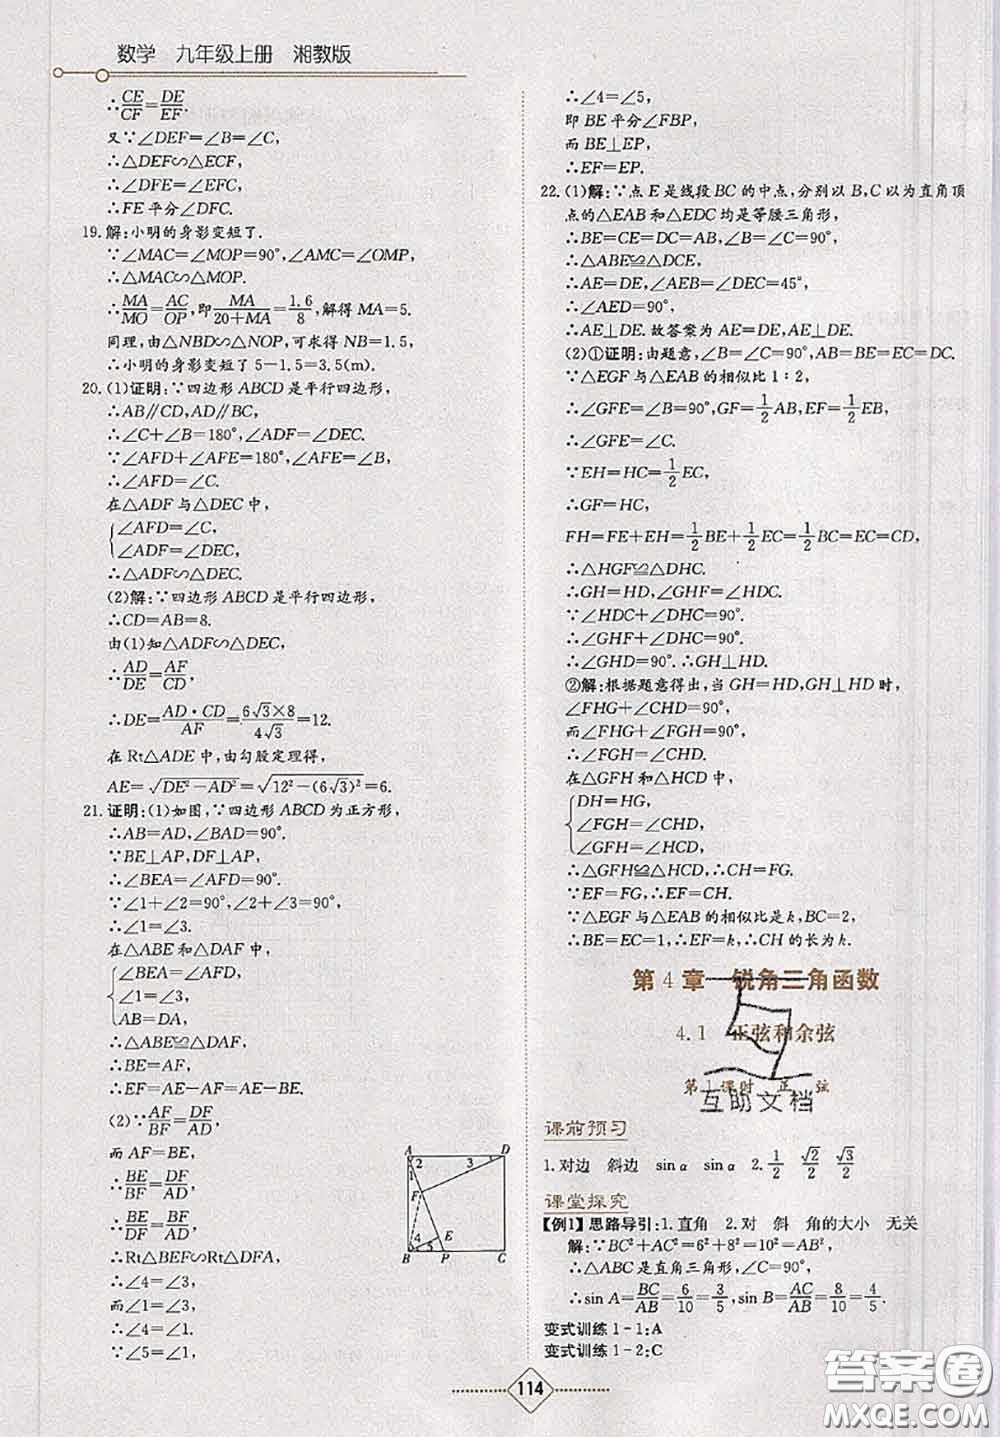 数学　九年级上册　湘教版
∴CE/CF=DE/EF.
又∵∠DEF=∠B=∠C,
∴△DEF∽△ECF,
∴∠DFE=∠EFC,
∴FE平分∠DFC.
19.解:小明的身影变短了.
∵∠MAC=∠MOP=90°,∠AMC=∠OMP,
∴△MAC∽△MOP.
∴MA/MO=AC/OP,即MA/(20+MA)=1.6/8,解得MA=5.
同理,由△NBD∽△NOP,可以求得NB=1.5,
∴小明的身影变短了5-1.5=3.5(m).
20.(1)证明:∵四边形ABCD是平行四边形,
∴AB∥CD,AD∥BC,
∴∠C+∠B=180°,∠ADF=∠DEC.
∵∠AFD+∠AFE=180°,∠AFE=∠B,
∴∠AFD=∠C.
在△ADF与△DEC中,
∠AFD=∠C,
∠ADF=∠DEC,
∴△ADF∽△DEC.
(2)解:∵四边形ABCD是平行四边形,
∴CD=AB=8.
由(1)知△ADF∽△DEC,
∴AD/DE=AF/CD,
∴DE=AD·CD/AF=6√3×8/4√3=12.
在Rt△ADE中,由勾股定理得,
AE=√(DE²-AD²)=√(12²-(6√3)²)=6.
21.证明:(1)如图,∵四边形ABCD为正方形,
∴AB=AD,∠BAD=90°.
∵BE⊥AP,DF⊥AP,
∴∠BEA=∠AFD=90°.
∵∠1+∠2=90°,∠2+∠3=90°,
∴∠1=∠3.
在△ABE和△DAF中,
∠BEA=∠AFD,
∠1=∠3,
AB=DA,
∴△ABE≌△DAF,
∴BE=AF,
∴EF=AE-AF=AE-BE.
(2)∵AF/BF=DF/AD,
而AF=BE,
∴BE/BF=DF/AD,
∴BE/DF=BF/AD,
∴Rt△BEF∽Rt△DFA,
∴∠4=∠3,
而∠1=∠3,
∴∠4=∠1.
∵∠5=∠1,
A 2 3 D
1
F
4 E
B 5 P C
∴∠4=∠5,
即BE平分∠FBP,
而BE⊥EP,
∴EF=EP.
22.(1)解:∵点E是线段BC的中点,分别以B,C以为直角顶
点的△EAB和△EDC均是等腰三角形,
∴BE=CE=DC=AB,∠B=∠C=90°,
∴△ABE≌△DCE,
∴AE=DE,∠AEB=∠DEC=45°,
∴∠AED=90°,
∴AE⊥DE.故答案为AE=DE,AE⊥DE.
(2)①证明:由题意,∠B=∠C=90°,AB=BE=EC=DC.
∵△EGF与△EAB的相似比1∶2,
∴∠GFE=∠B=90°,GF=1/2AB,EF=1/2EB,
∴∠GFE=∠C.
∵EH=HC=1/2EC,
∴GF=HC,
FH=FE+EH=1/2BE+1/2EC=1/2BC=EC=CD,
∴△HGF≌△DHC.
∴GH=HD,∠GHF=∠HDC.
∵∠HDC+∠DHC=90°.
∴∠GHF+∠DHC=90°.
∴∠GHD=90°.∴GH⊥HD.
②解:根据题意得出,当GH=HD,GH⊥HD时,
∠FHG+∠DHC=90°,
而∠FHG+∠FGH=90°,
∴∠FGH=∠CHD.
在△GFH和△HCD中,
DH=HG,
∠FGH=∠CHD,
∠GFH=∠HCD,
∴△GFH≌△HCD,∴CH=FG.
∵EF=FG,∴EF=CH.
∵△EGF与△EAB的相似比是k,BC=2,
∴BE=EC=1,∴EF=k,∴CH的长为k.
第4章　锐角三角函数
4.1　正弦和余弦
第1课时　正　弦
互助文档
课前预习
1.对边　斜边　sinα　sinα　2.1/2　√2/2　√3/2
课堂探究
【例1】思路导引:1.直角　2.对　斜　角的大小　无关
解:∵BC²+AC²=6²+8²=10²=AB²,
∴△ABC是直角三角形,∠C=90°,
∴sin A=BC/AB=6/10=3/5,sin B=AC/AB=8/10=4/5.
变式训练1-1:A
变式训练1-2:C
114
答案圈
MXQE.COM